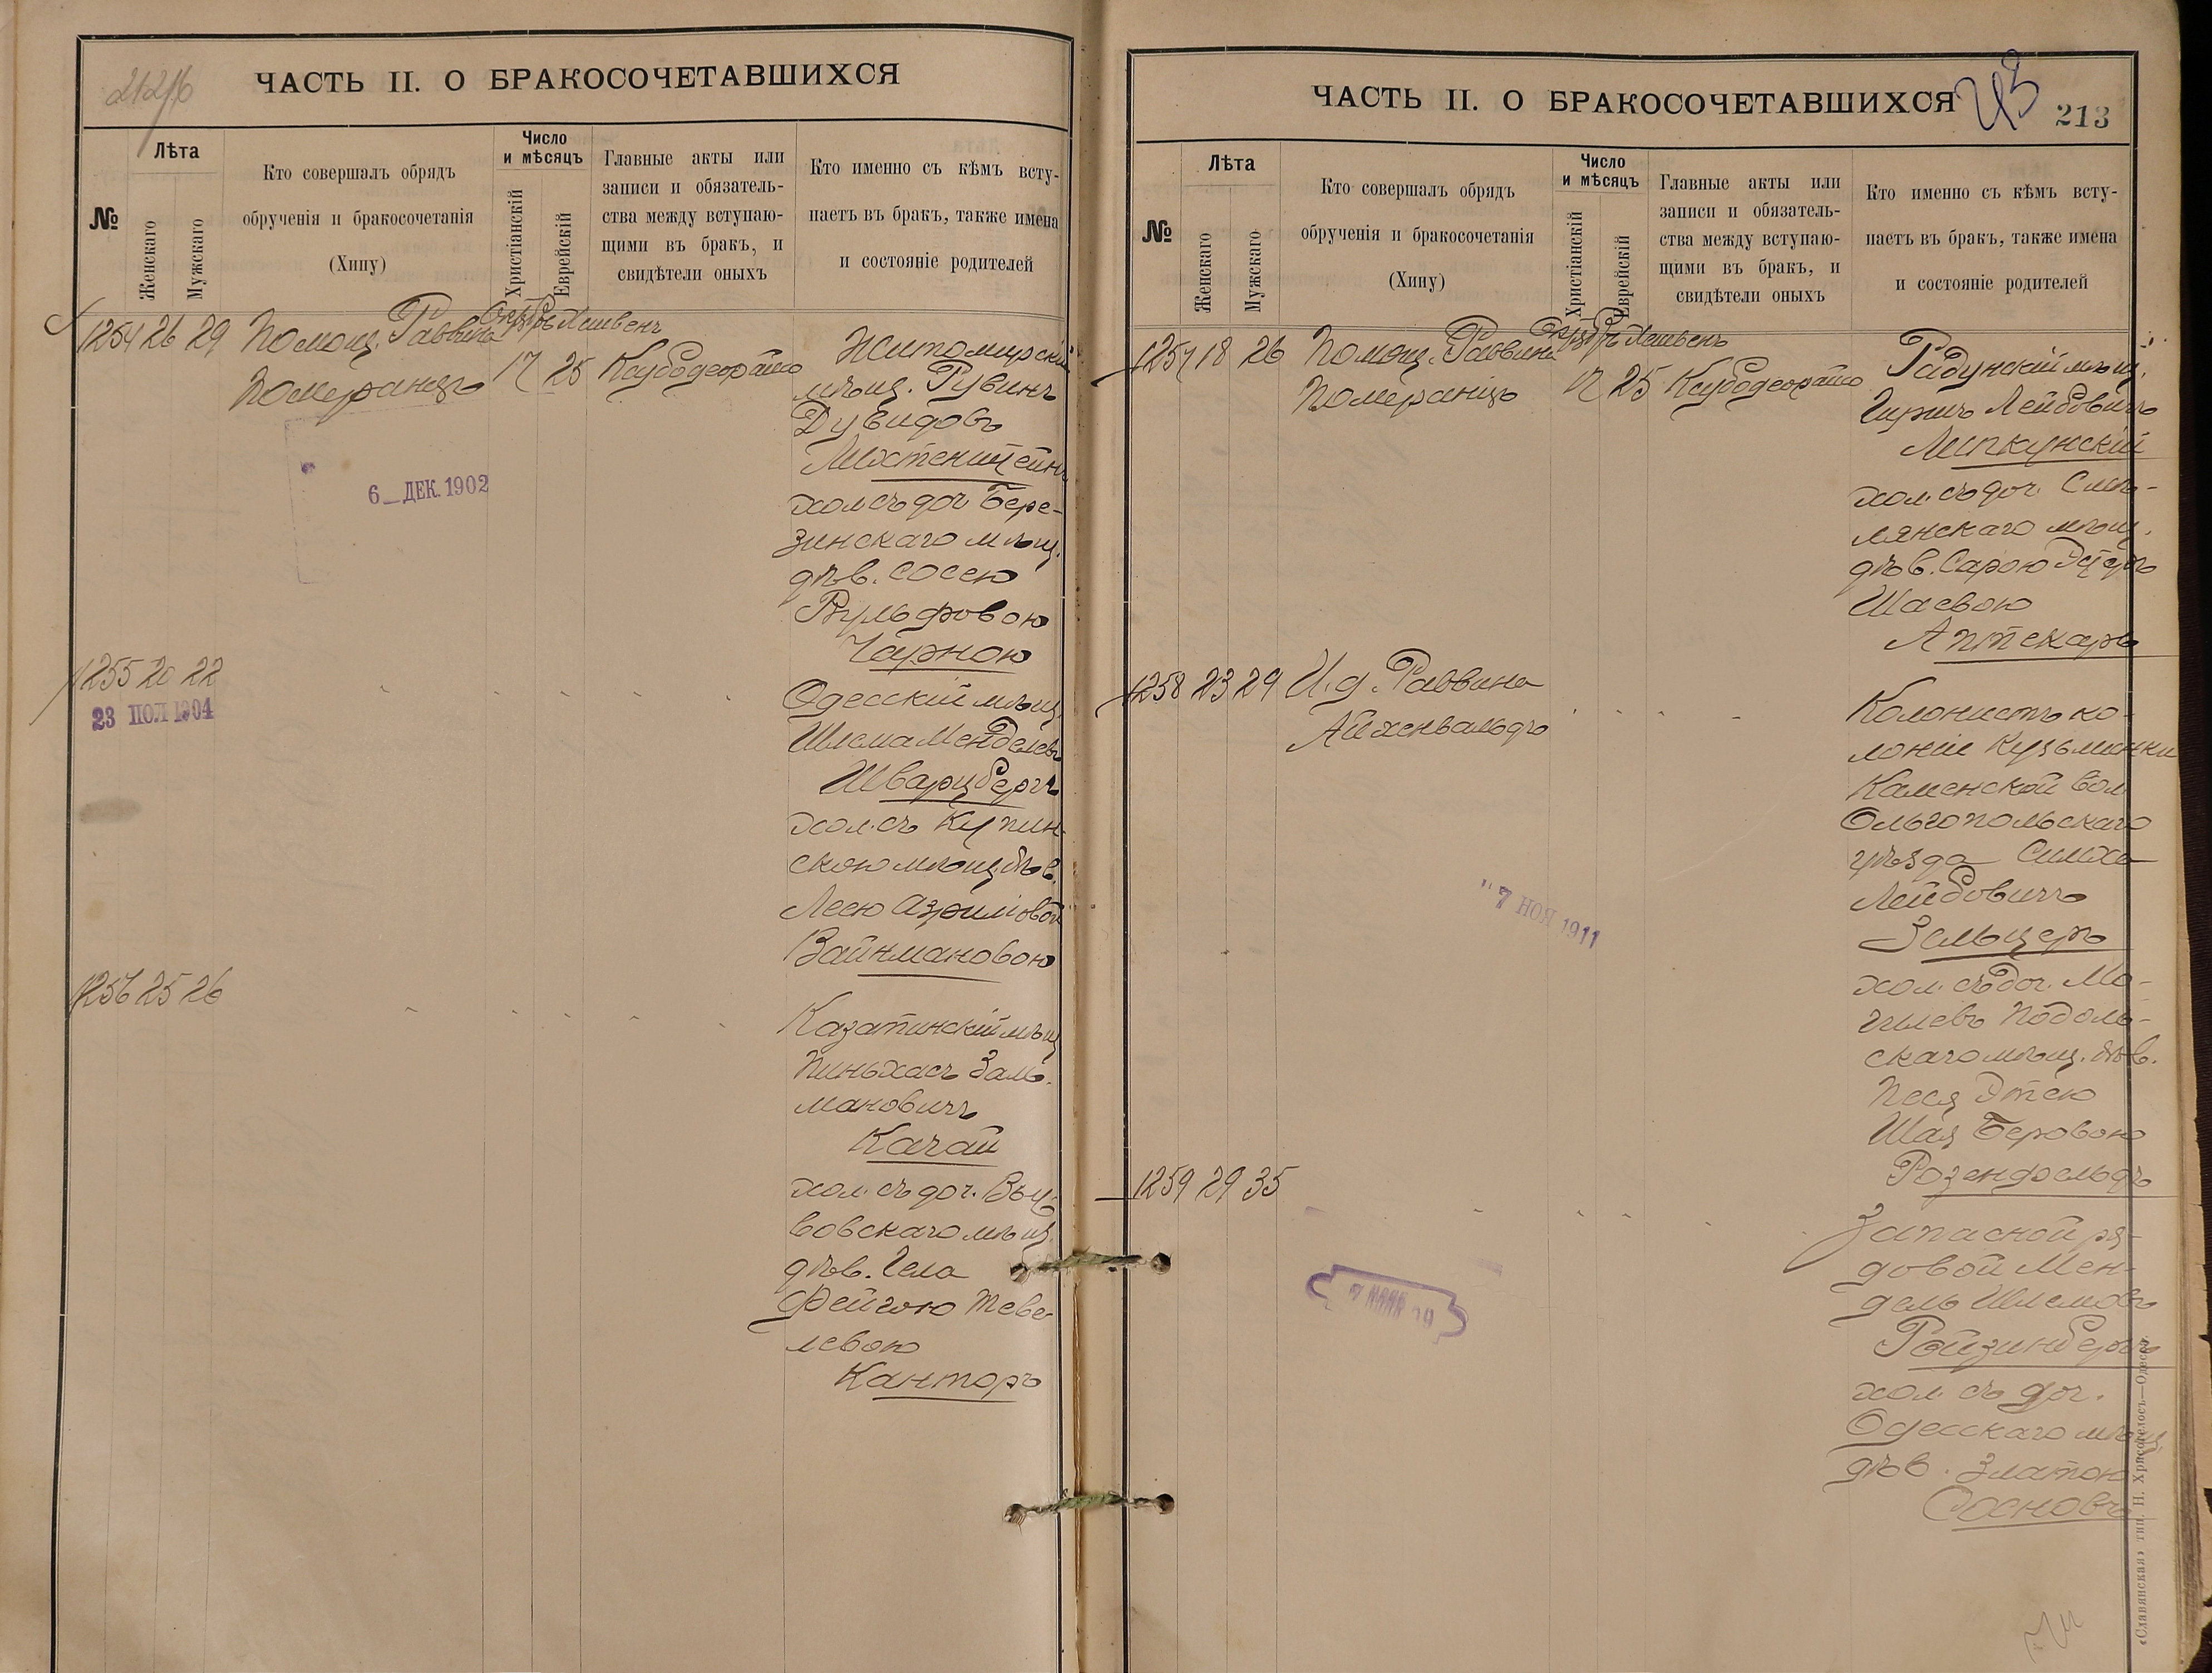 ЧАСТЬ II. О БРАКОСОЧЕТАВШИХСЯ
№
Лѣта
Женскаго
Мужскаго
Кто совершалъ обрядъ
обрученія и бракосочетанія
(Хипу)
Число
и мѣсяцъ
Христіанскій
Еврейскій
Главные акты или
записи и обязатель-
ства между вступаю-
щими въ бракъ, и
свидѣтели оныхъ
Кто именно съ кѣмъ всту-
паетъ въ бракъ, также имена
и состояніе родителей
1254 26 29 Помощ. Раввина
Померанцъ
Октябрь Хешвенъ
17 25
Житомирскій
мѣщ. Рувинъ
Дувидовъ
Лихтенштейнъ
хол. съ доч. Бере-
зинскаго мѣщ.
дѣв. Сосею
Вульфовою
Чарною
6 _ ДЕК. 1902
1255 20 22
23 ІЮЛ 1904
Одесскій мѣщ.
Шлема Менделевъ
Шварцбергъ
хол. съ Купин-
скою мѣщ. дѣв.
Лею
Вайнмановою
1256 25 26
Казатинскій мѣщ.
Пиньхасъ Заль-
мановичъ
Качай
хол. съ доч.
вовскаго мѣщ.
дѣв. Гела
Фейгою Теве-
левою
Канторъ
ЧАСТЬ II. О БРАКОСОЧЕТАВШИХСЯ
213
№
Лѣта
Женскаго
Мужскаго
Кто совершалъ обрядъ
обрученія и бракосочетанія
(Хипу)
Число
и мѣсяцъ
Христіанскій
Еврейскій
Главные акты или
записи и обязатель-
ства между вступаю-
щими въ бракъ, и
свидѣтели оныхъ
Кто именно съ кѣмъ всту-
паетъ въ бракъ, также имена
и состояніе родителей
1257 18 26 Помощ. Раввина
Померанцъ
Октябрь Хешвенъ
17 25
Радунскій мѣщ.
Гиршъ Лейбовичъ
Липкунскій
хол. съ доч. Смѣ-
лянскаго мѣщ.
дѣв. Сарою Эстеръ
Шаевою
Аптекарь
1258 23 29 И. д. Раввина
Айхенвальдъ
Колонистъ ко-
лоніи Кузьминки
Каменской вол.
Ольгопольскаго
уѣзда Симха
Лейбовичъ
Зельцеръ
хол. съ доч. Мо-
гилевъ Подоль-
скаго мѣщ. дѣв.
Песя Этею
Шая Беровою
Розенфельдъ
7 НОЯ 1911
1259 29 35
Запасной ря-
довой Мен-
дель Шлемовъ
Ройзинбергъ
хол. съ доч.
Одесскаго мѣщ.
дѣв. Златою
Сосновъ
«Славянская» тип. Н. Хрисогелосъ—Одесса.